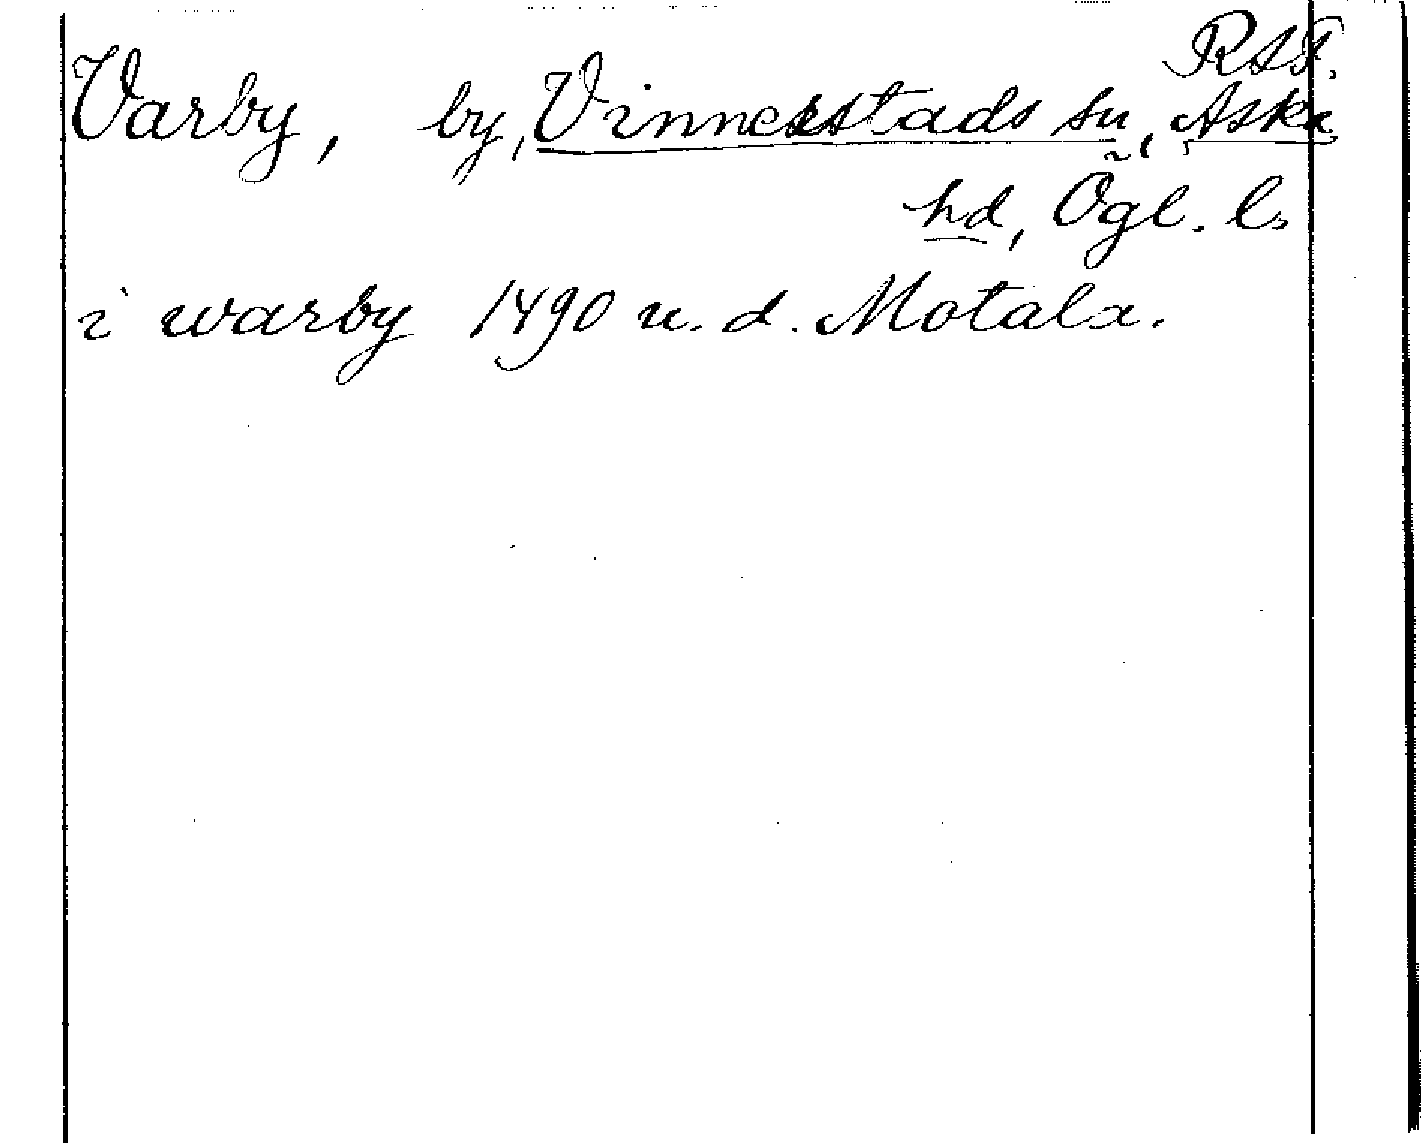 RAP.
Varby, by, Vinnerstads sn, Aska
hd, Ögl. l.
i warby 1490 u. d. Motala.